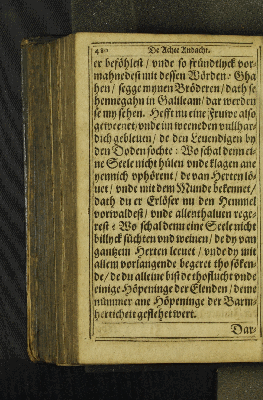 480 De Achte Andacht.
er beföhlest / vnde so fründtlyck vor-
mahnedest mit dessen Wörden: Gha
hen / segge mynen Bröderen / dath se
hennegahn in Galileam / dar werden
se my sehen. Hefft nu eine Fruwe also
geweenet / vnde im weenende vullhar-
dich gebleuen / de den Leuendigen by
den Doden sochte: Wo schal denn ei-
ne Seele nicht hülen vnde klagen ane
yennich vphörent / de van Herten lö-
uet / vnde mit dem Munde bekennet /
dath du er Erlöser nu den Hemmel
vorwaldest / vnde allenthaluen rege-
rest? Wo schal denn eine Seele nicht
billyck süchten vnd weinen / de dy van
gantzem Herten leeuet / vnde dy mit
allem vorlangende begeret tho söken-
de / de du alleine bist de thoflucht vnde
einige Höpeninge der Elenden / deme
nümmer ane Höpeninge der Barm-
herticheit geflehet wert.
Dar-